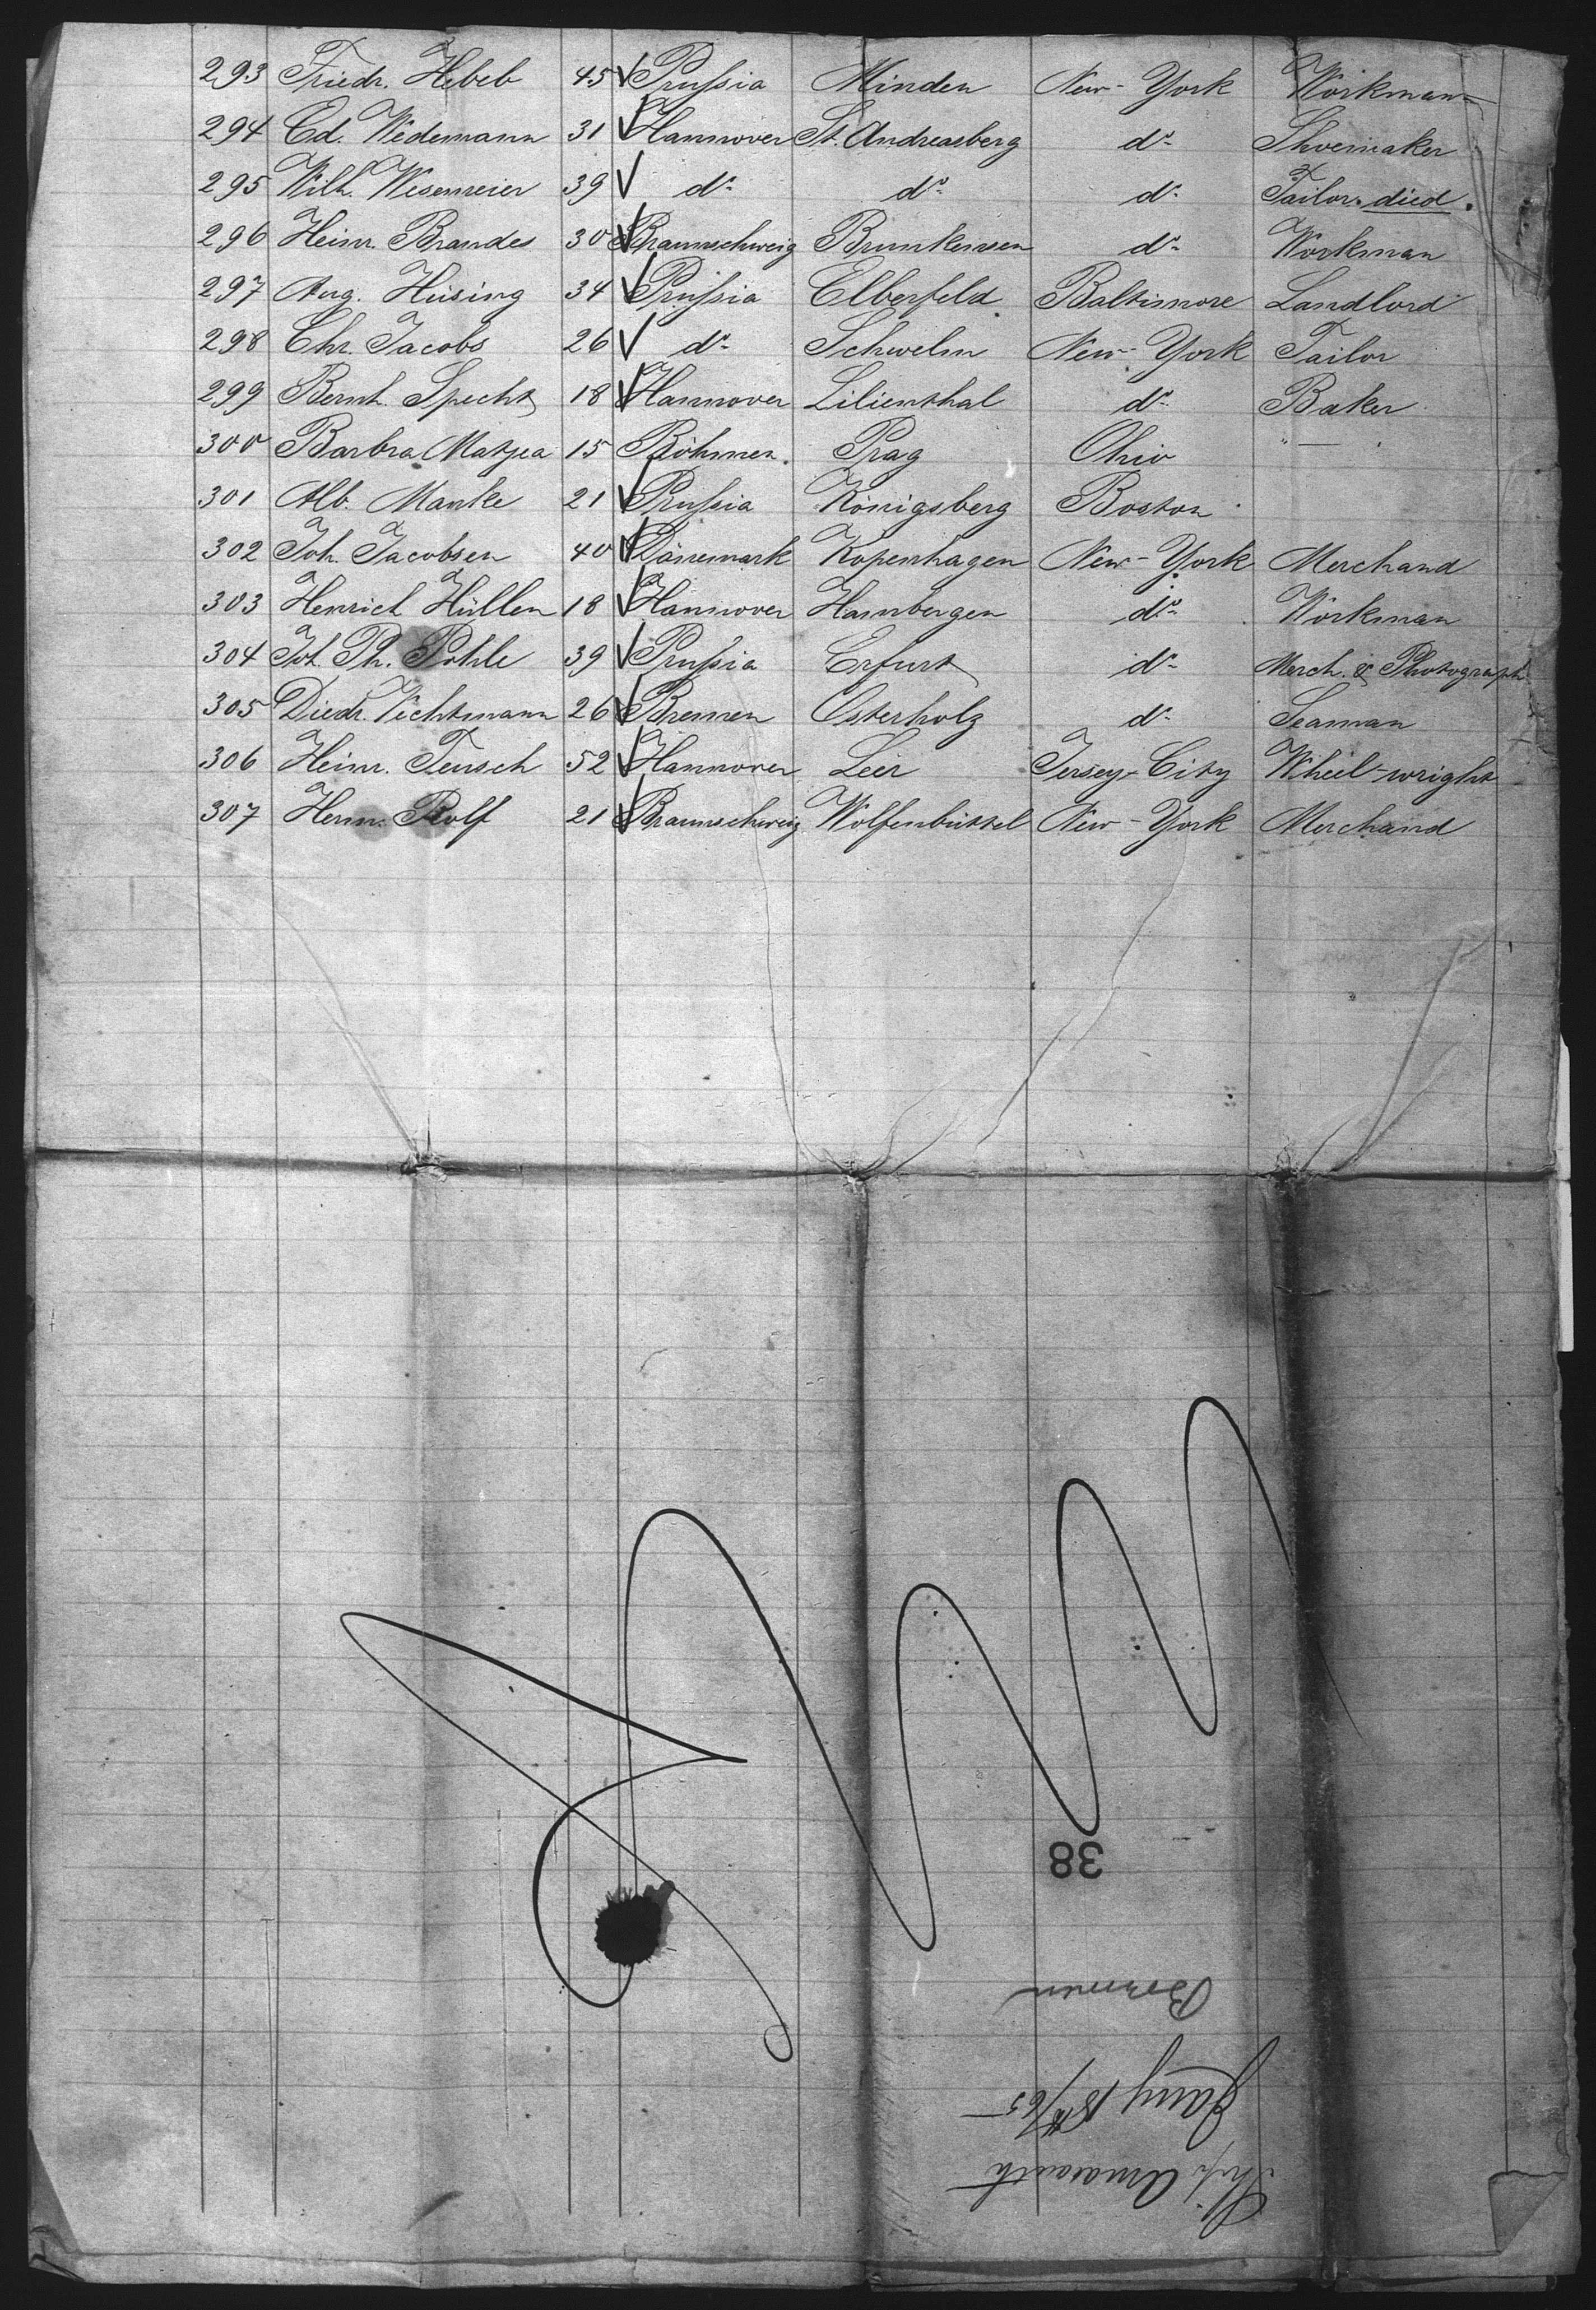 293 Friedr. Hebeb 45 √ Prussia Minden New-York Workman
294 Ed. Wedemann 31 √ Hannover St. Andreasberg do Shoemaker
295 Wilh. Wesemeier 39 √ do do do Tailor. died.
296 Heinr. Brandes 30 √ Braunschweig Brunkensen do Workman
297 Aug. Hüsing 34 √ Prussia Elberfeld Baltimore Landlord
298 Chr. Jacobs 26 √ do Schwelm New-York Tailor
299 Bernh. Specht 18 √ Hannover Lilienthal do Baker
300 Barbra Matjea 15 Böhmen. Prag Ohio " —
301 Alb. Manke 21 √ Prussia Königsberg Boston
302 Joh. Jacobsen 40 √ Dänemark Kopenhagen New-York Merchand
303 Henrich Hüllen 18 √ Hannover Hambergen do Workman
304 Joh. Ph. Pohle 39 √ Prussia Erfurt do Merch. & Photograph
305 Diedr. Vichtmann 26 √ Bremen Osterholz do Seaman
306 Heinr. Teusch 52 √ Hannover Leer Jersey-City Wheel-wright
307 Herm. Rolf 21 √ Braunschweig Wolfenbüttel New-York Merchand
Ship Amaranth
Jany 18th/65
Bremen
38